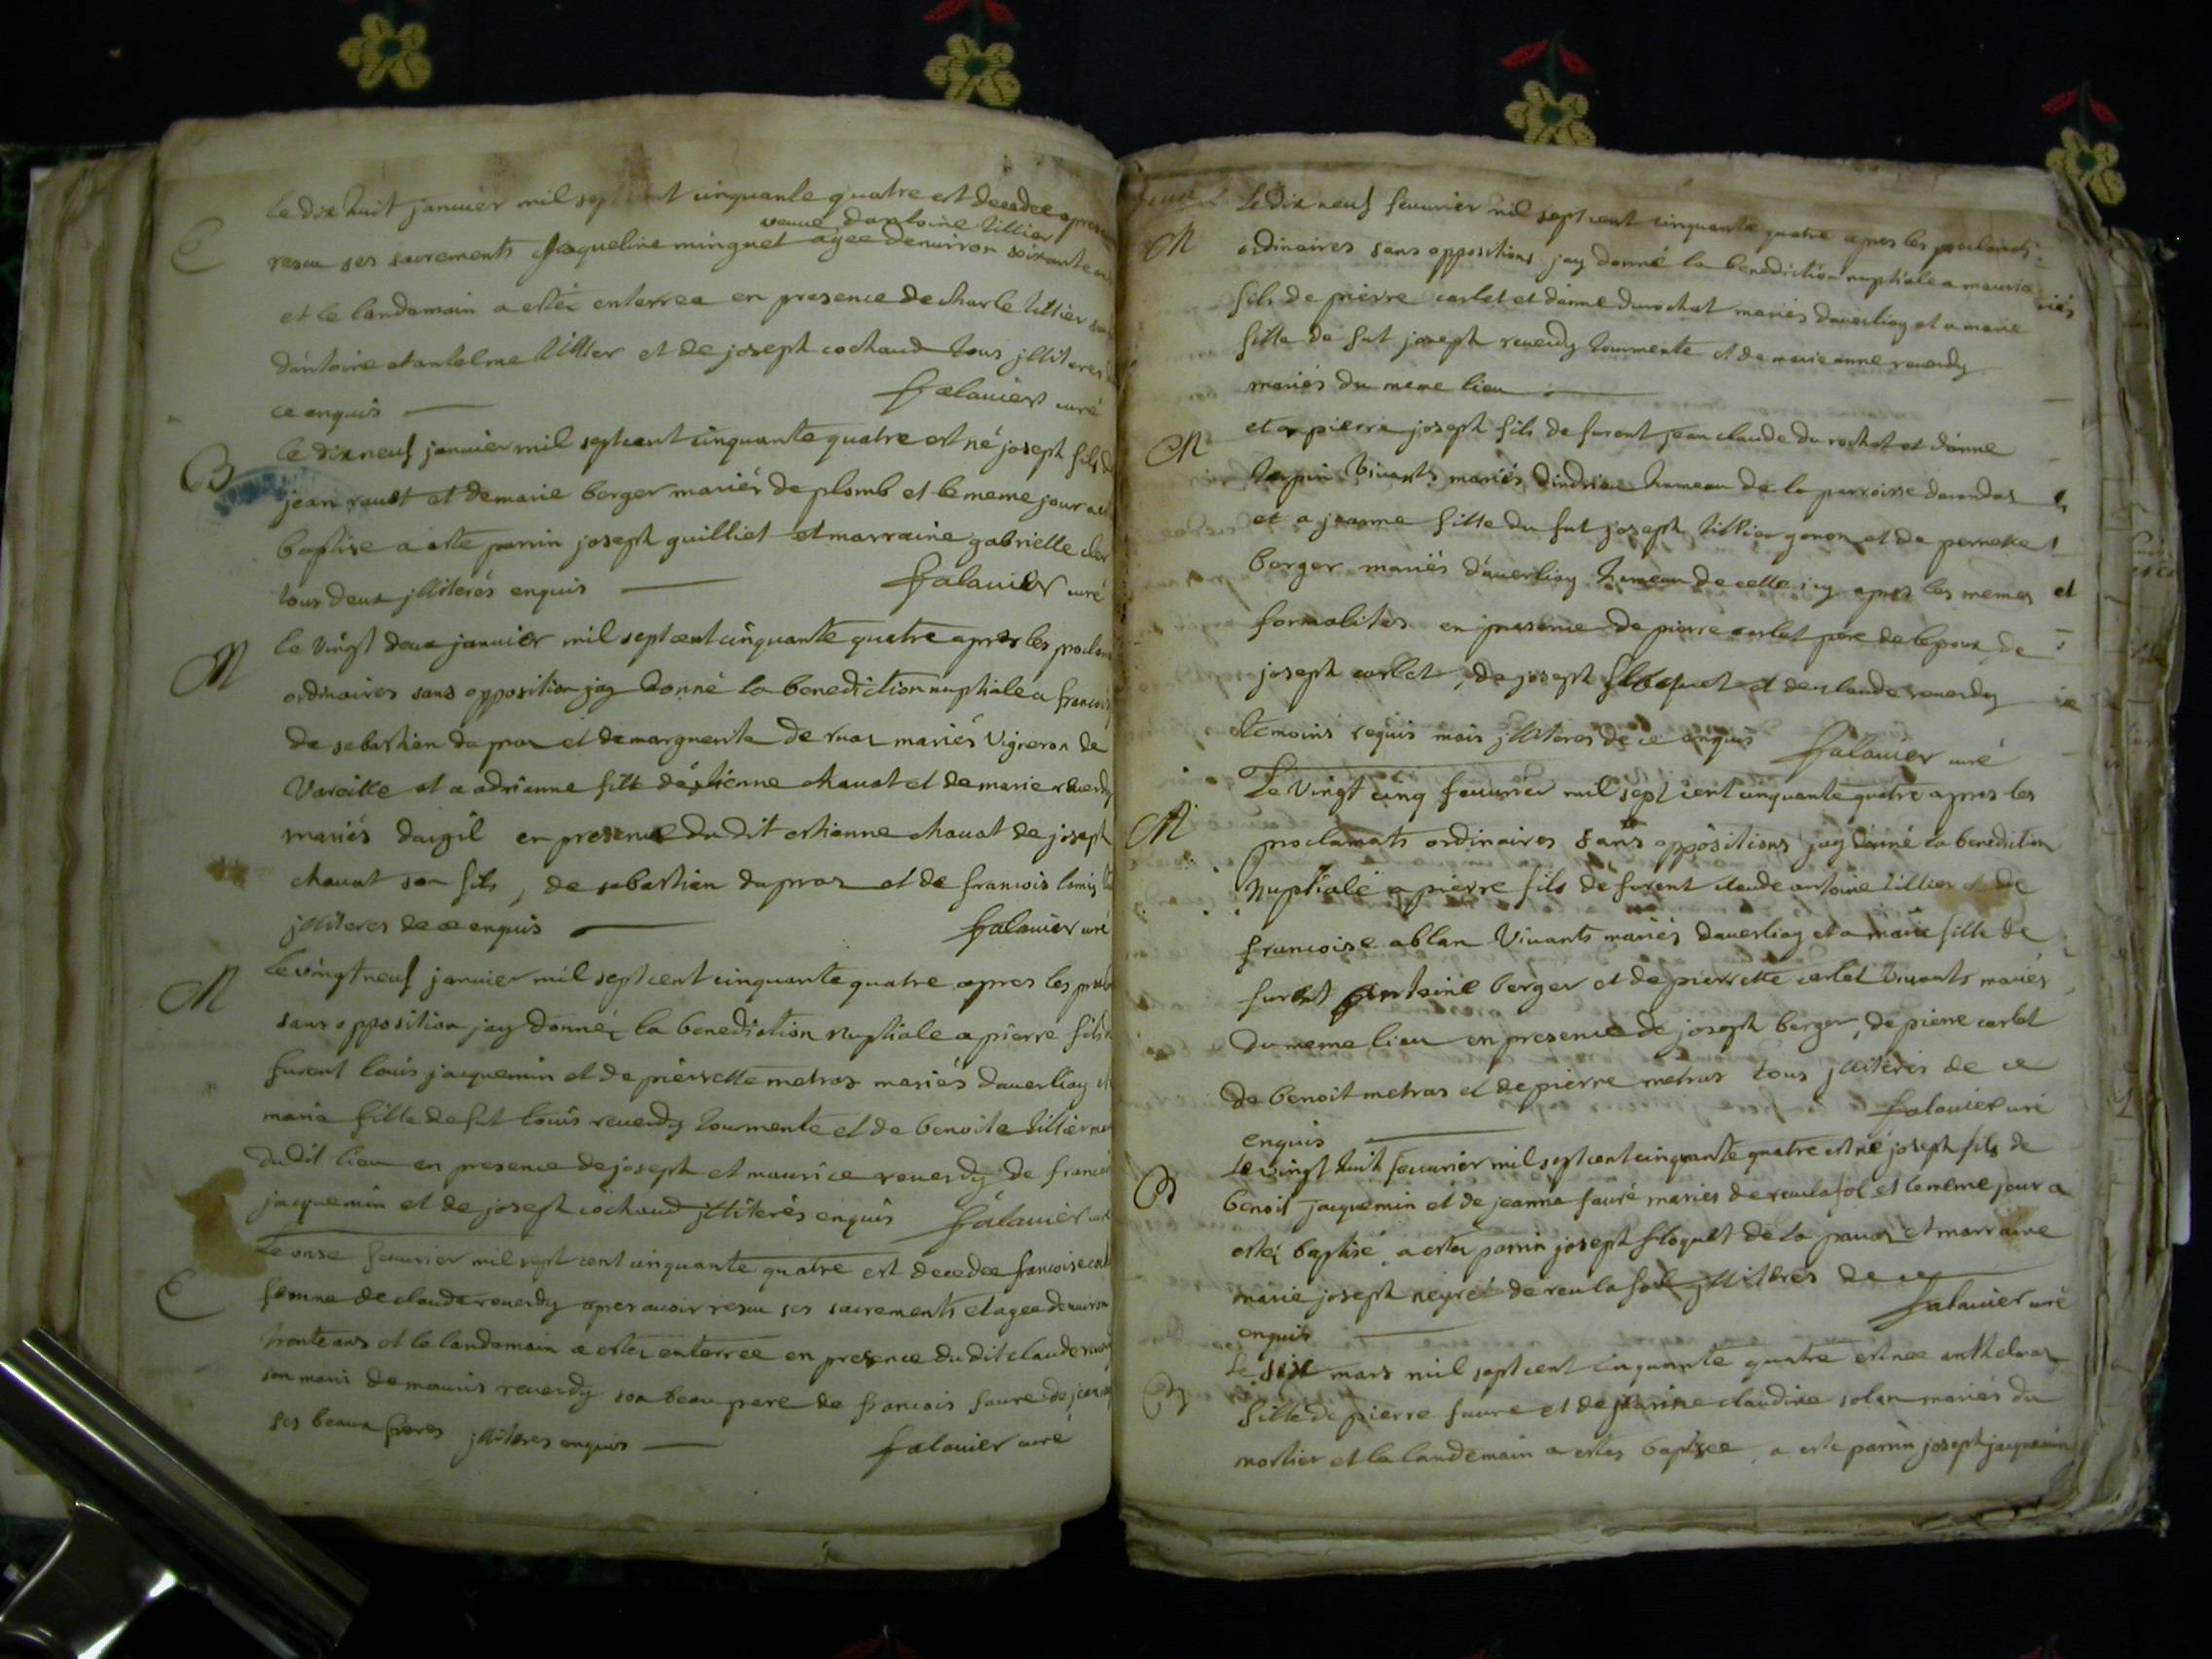 E
le dix huit januier mil sept cent cinquante quatre est decedee apres
veuue dantoine tillier
reseu ses sacrements Jaqueline minguet agee denuiron soixante ans
et le landemain a estéz enterree en presence de charle tillier
dantoine et antelme tillier et de joseph cochaud tous jlliteres
ce enquis falauier curé
B
le dix neuf januier mil sept cent cinquante quatre est né joseph fils de
jean et de marie berger mariés de plomb et le meme jour a
baptise a este parrin joseph guilliet et marraine gabrielle
tous deux jlliterés enquis falauier curé
M
le vingt deux januier mil sept cent cinquante quatre apres les
ordinaires sans opposition jay donné la benediction nuptiale a francois
de sebastien dupras et de marguerite de mariés vigneron de
Vareille et a adrianne fille déstienne chauat et de marie reuerdy
mariés dargil en presence du dit estienne chauat de joseph
chauat son fils, de sebastien dupras et de francois
jlliteres de ce enquis falauier curé
M
le vingt neuf januier mil sept cent cinquante quatre apres les
sans opposition jay donnéz la benediction nuptiale a pierre fils
furent louis jacquemin et de pierrette metras mariés dauerliay et
marie fille de fut louis reuerdy tourmente et de benoite tillier
du dit lieu en presence de joseph et maurice reuerdy de francois
jacquemin et de joseph cochaud jlliterés enquis falauier curé
E
Le onse feuurier mil sept cent cinquante quatre est decedee francoise
femme de claude reuerdy apres auoir reseu ses sacrements et agee denuiron
trante ans et le landemain a estez enterree en presence du dit claude reuerdy
son mari de mauris reuerdy son beau pere de francois faure de
ses beaux freres jlliteres enquis falauier curé
M
Le dix neuf feuurier mil sept cent cinquante quatre apres les proclamats
ordinaires sans oppositions jay donné la benediction nuptiale a maurice
fils de pierre carlet et danne durochat mariés dauerliay et a marie
fille de fut joseph reuerdy tourmente et de marie anne reuerdy
mariés du meme lieu
M
et a pierre joseph fils de furent jean claude du rochat et danne
Vivants mariés dindrieu hameau de la parroisse darandas
et a jeanne fille du fut joseph tillier gonon et de pernette
berger mariés dauerliay hameau de celle icy apres les memes
formalités en presence de pierre carlet pere de lepoux, de
joseph carlet, de joseph floquet et de claude reuerdy
temoins requis mais jlliteres de ce enquis falauier curé
M
Le Vingt cinq feuurier mil sept cent cinquante quatre apres les
proclamats ordinaires sans oppositions jay donné la benediction
Nuptiale a pierre fils de furent claude antoine tillier et de
francoise ablan Viuants mariés dauerliay et a marie fille de
furent antoine berger et de pierrette carlet viuants mariés
du meme lieu en presence de joseph berger, de pierre carlet
de benoit metras et de pierre metras tous jlliteres de ce
enquis falauier curé
B
Le vingt huit feuurier mil sept cent cinquante quatre est né joseph fils de
benoit jacquemin et de jeanne fauré mariés de reculafol et le meme jour a
estéz baptisé, a estez parrin joseph floquet de la pauas et marraine
marie joseph neyret de reculafol jlliteres de ce
enquis falauier curé
B
Le six mars mil sept cent cinquante quatre est nee anthelmas
fille de pierre faure et de claudine solan mariés du
mortier et la landemain a estez baptisee, a este parrin joseph jacquemin